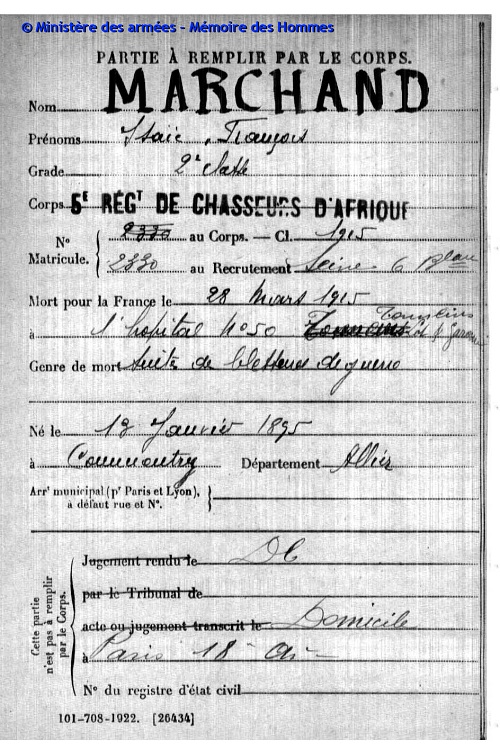 © Ministère des armées - Mémoire des Hommes
PARTIE À REMPLIR PAR LE CORPS.
Nom MARCHAND
Prénoms Isaïe, François
Grade 2e classe
Corps 5E RÉGT DE CHASSEURS D'AFRIQUE
N° Matricule. 2330 au Corps. — Cl. 1915
2330 au Recrutement Seine 6 Bau
Mort pour la France le 28 Mars 1915
à l'hopital N°50
Genre de mort suite de blessures de guerre
Né le 13 Janvier 1895
à Commentry Département Allier
Arrt municipal (pr Paris et Lyon), à défaut rue et N°.
Cette partie n'est pas à remplir par le Corps.
Jugement rendu le DC
par le Tribunal de
acte ou jugement transcrit le Domicile
à Paris 18e Art
N° du registre d'état civil
101-708-1922. [26434]